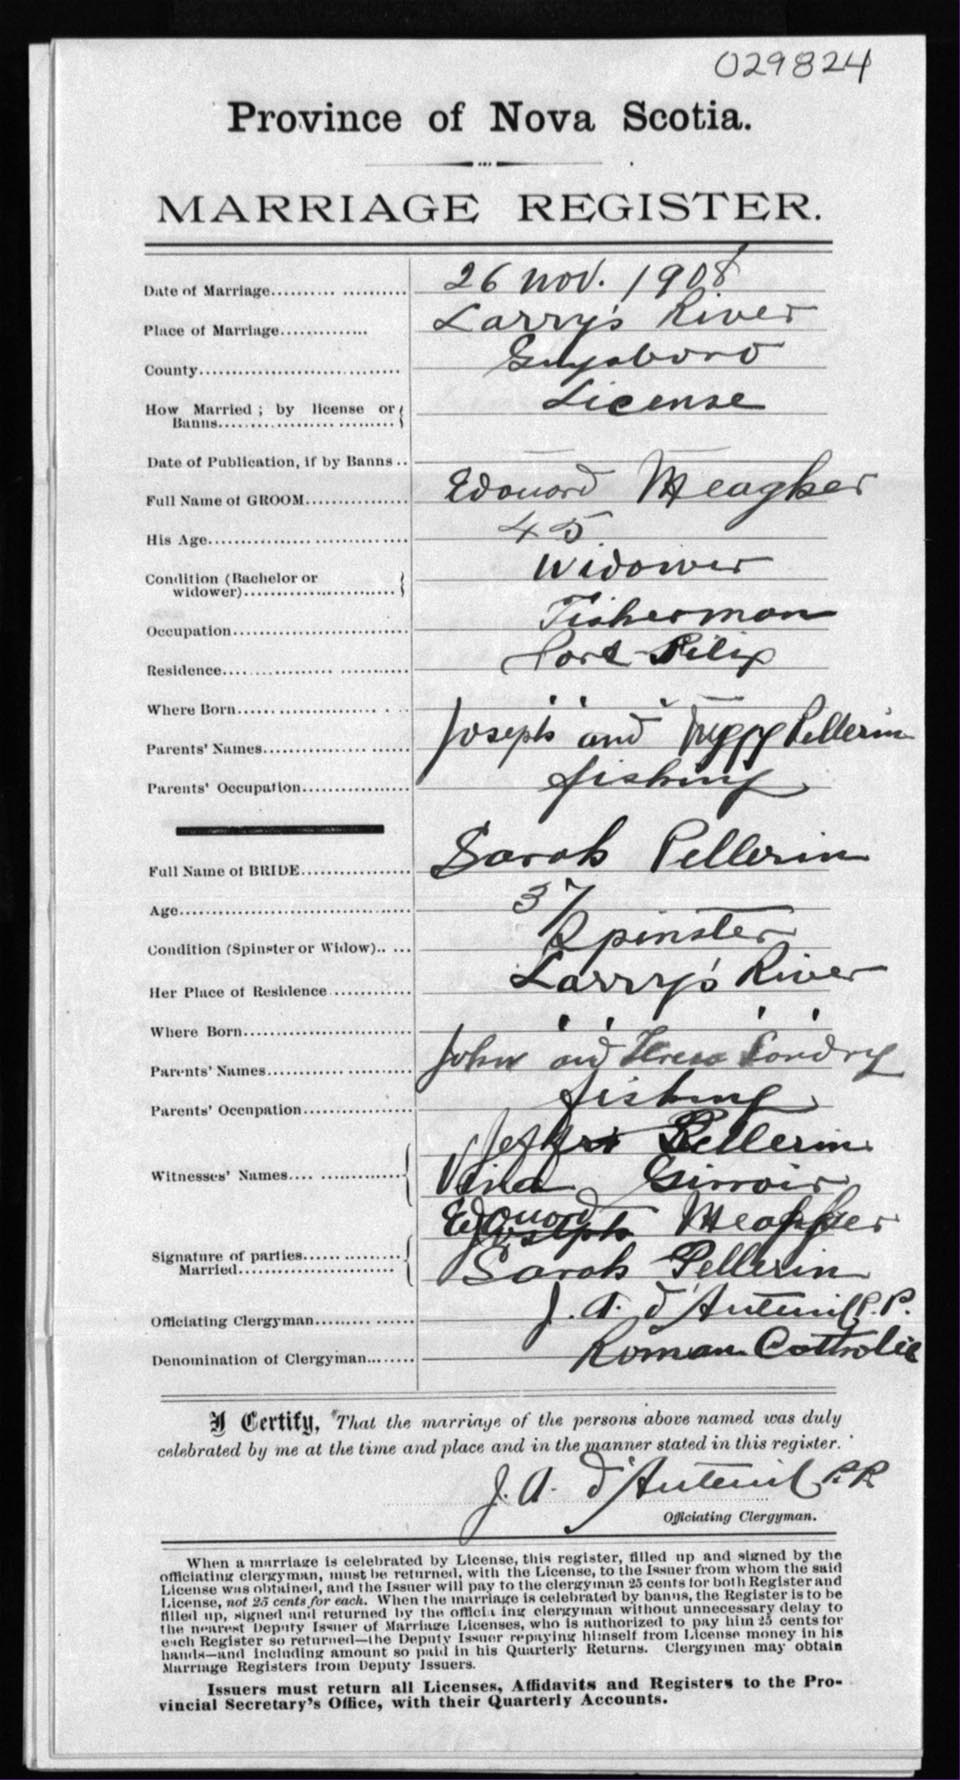 029824
Province of Nova Scotia.
MARRIAGE REGISTER.
Date of Marriage.......... .......... 26 Nov. 1908
Place of Marriage............. Larry's River
County.............................. Guysboro
How Married ; by license or
Banns.............................. License
Date of Publication, if by Banns ..
Full Name of GROOM............... Edouard Meagher
His Age.............................. 45
Condition (Bachelor or
widower)......................... Widower
Occupation............................ Fisherman
Residence............................. Port Felix
Where Born...................... . .. " "
Parents' Names....................... Joseph and Pellerin
Parents' Occupation................. fishing
Full Name of BRIDE................. Sarah Pellerin
Age..................................... 37
Condition (Spinster or Widow).. ... Spinster
Her Place of Residence ............ Larry's River
Where Born......................... " "
Parents' Names...................... John and Landry
Parents' Occupation................ fishing
Pellerin
Witnesses' Names.... ............... Girroir
Edouard Meagher
Signature of parties...............
Married......................... Sarah Pellerin
Officiating Clergyman......... ...... J. A. d'Auteuil P.P.
Denomination of Clergyman......... Roman Catholic
I Certify, That the marriage of the persons above named was duly
celebrated by me at the time and place and in the manner stated in this register.
J. A. d'Auteuil P.P.
Officiating Clergyman.
When a marriage is celebrated by License, this register, filled up and signed by the
officiating clergyman, must be returned, with the License, to the Issuer from whom the said
License was obtained, and the Issuer will pay to the clergyman 25 cents for both Register and
License, not 25 cents for each. When the marriage is celebrated by banns, the Register is to be
filled up, signed and returned by the officiating clergyman without unnecessary delay to
the nearest Deputy Issuer of Marriage Licenses, who is authorized to pay him 25 cents for
each Register so returned—the Deputy Issuer repaying himself from License money in his
hands—and including amount so paid in his Quarterly Returns. Clergymen may obtain
Marriage Registers from Deputy Issuers.
Issuers must return all Licenses, Affidavits and Registers to the Pro-
vincial Secretary's Office, with their Quarterly Accounts.